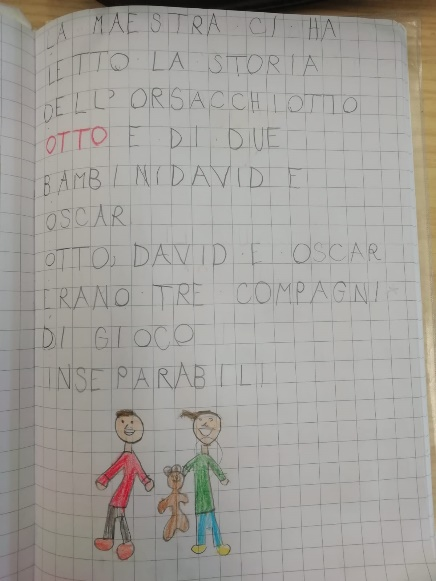 LA MAESTRA CI HA
LETTO LA STORIA
DELL' ORSACCHIOTTO
OTTO E DI DUE
BAMBINI DAVID E
OSCAR
OTTO, DAVID E OSCAR
ERANO TRE COMPAGNI
DI GIOCO
INSEPARABILI